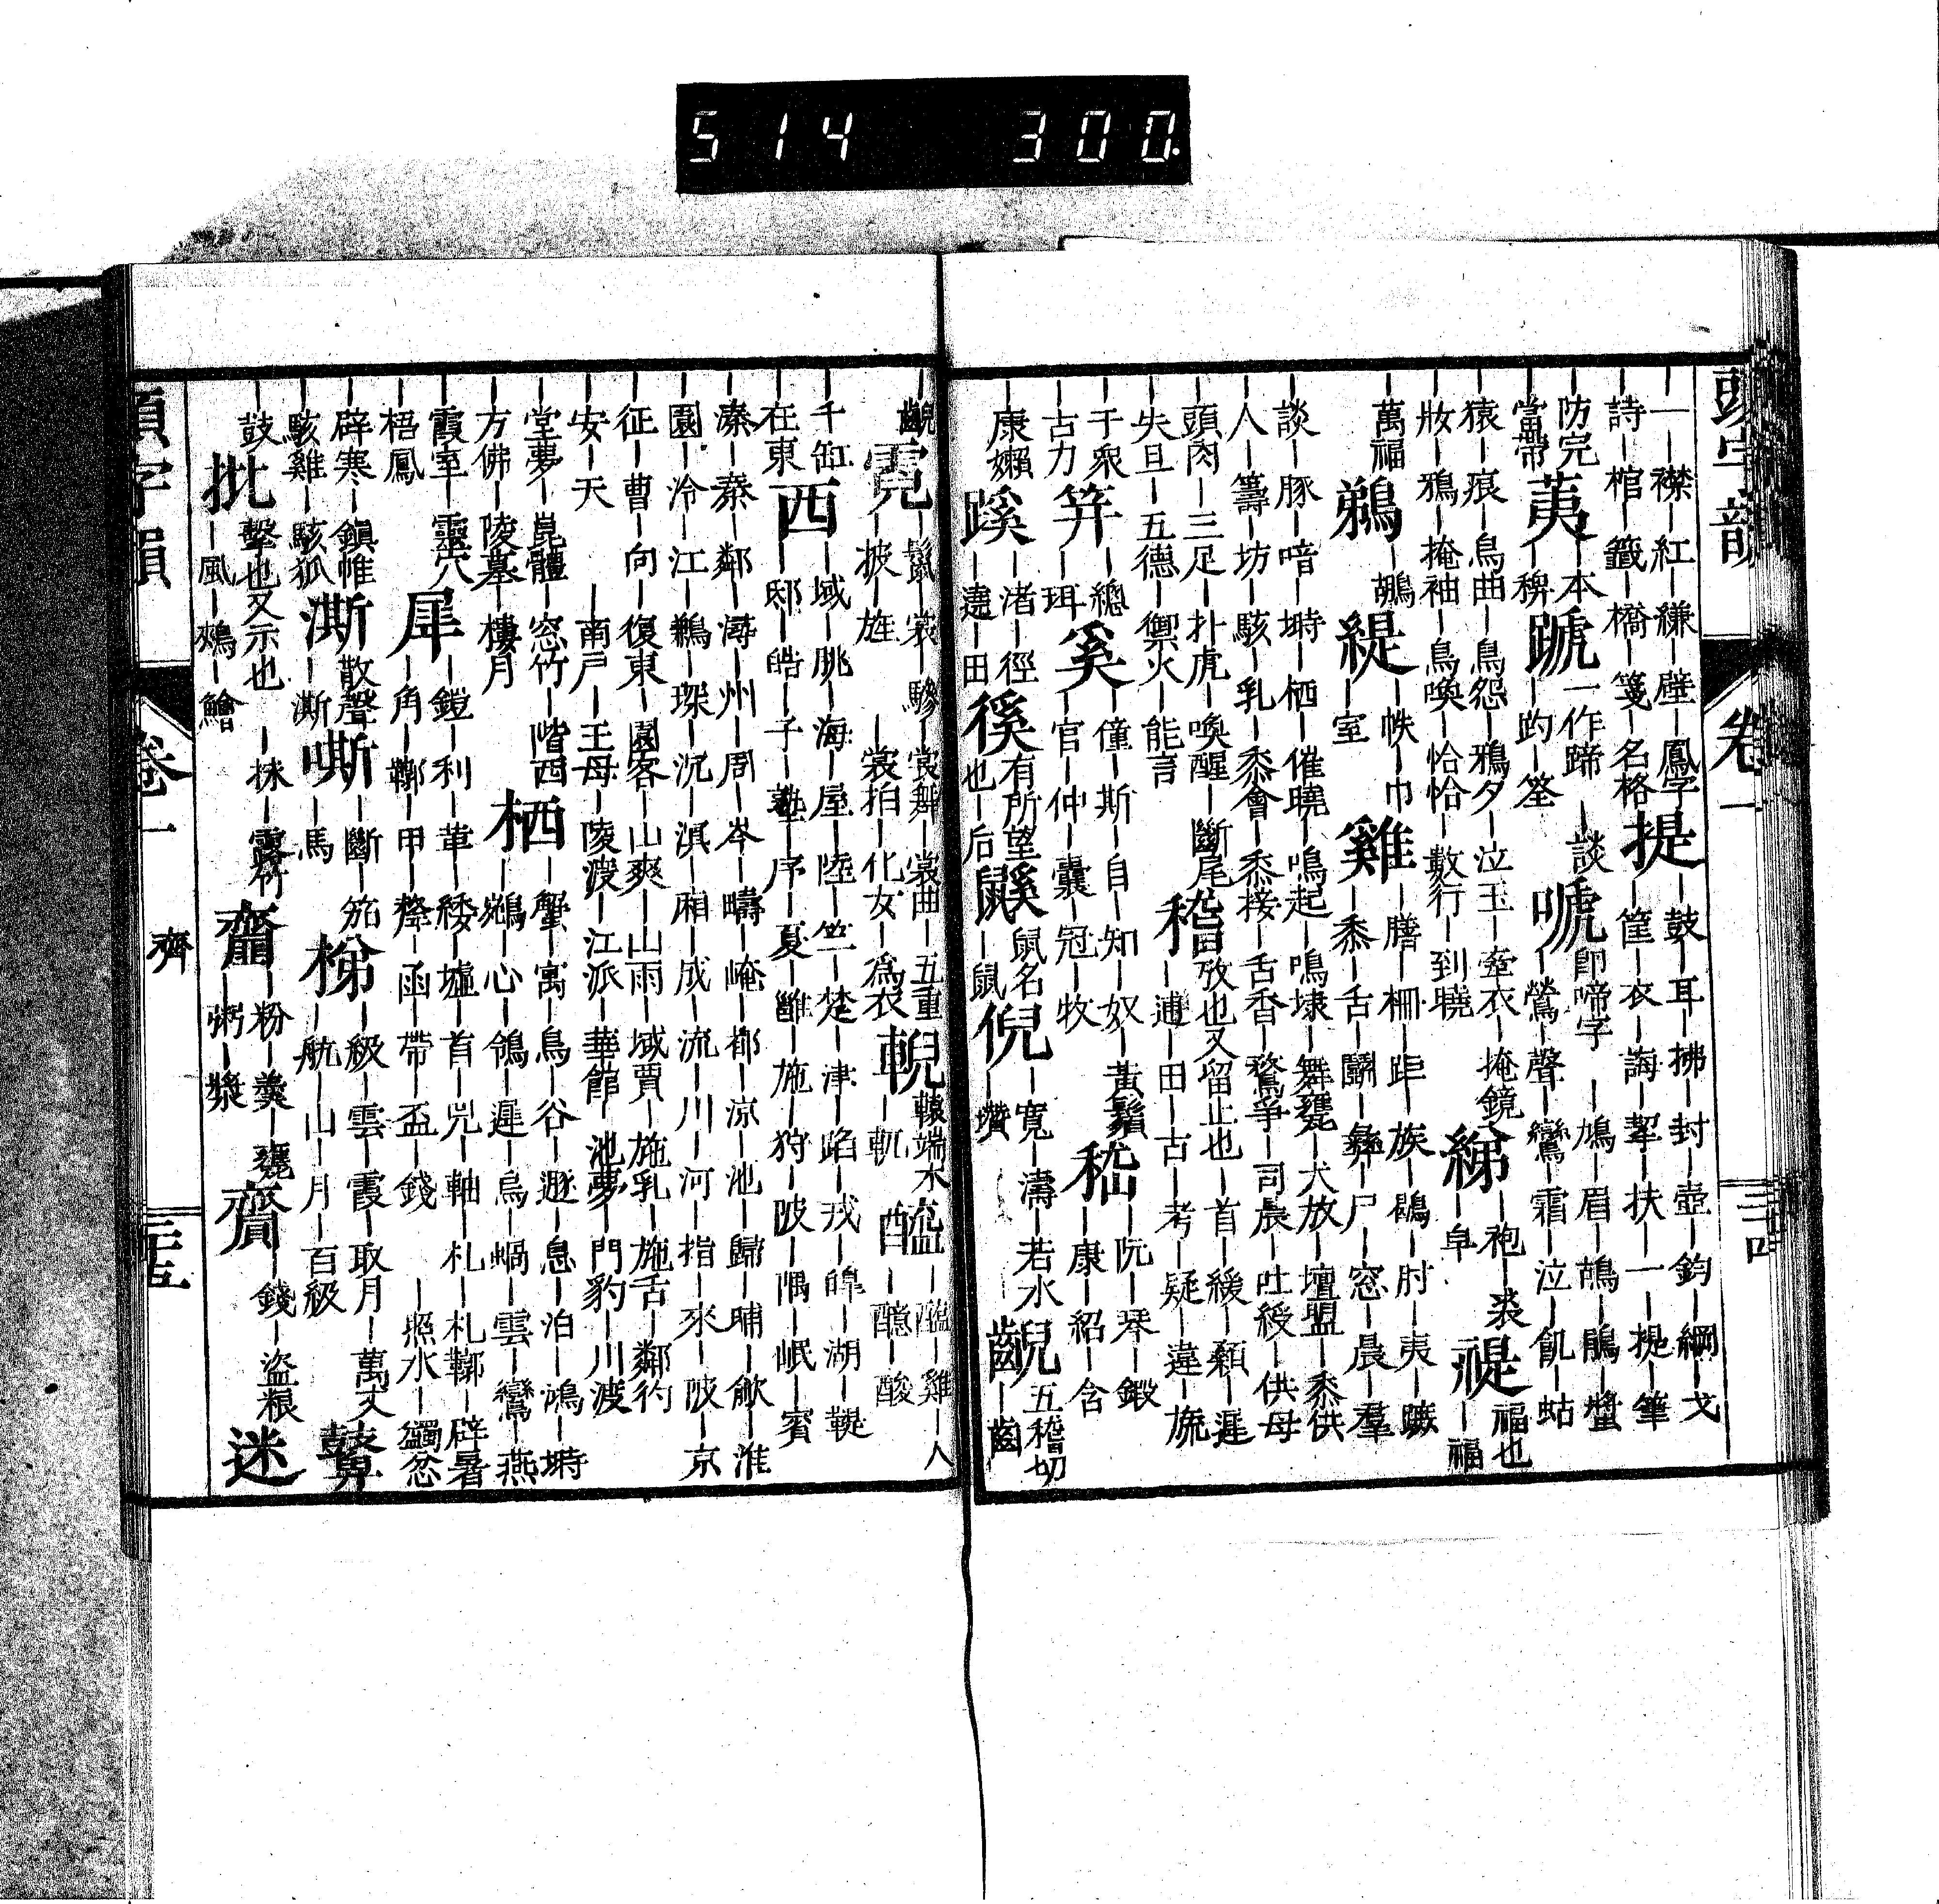 514 300
頭字韻
卷一
三四
｜｜襟｜紅｜縑｜壁｜鳳字提｜鼓｜耳｜拂｜封｜壺｜鈞｜綱｜戈
｜詩｜棺｜籤｜橋｜箋｜名格｜筐｜衣｜誨｜挈｜扶｜一｜提｜筆
｜防完荑｜本蹏一作蹄｜談嗁即啼字｜鳩｜眉｜鵠｜鵑｜螿
｜當帶｜稗｜趵｜筌｜鶯｜聲｜鸞｜霜｜泣｜飢｜蛄
｜猿｜痕｜烏曲｜烏怨｜鴉夕｜泣玉｜牽衣｜掩鏡綈｜袍｜裘禔福也
｜妝｜鴉｜掩袖｜烏喚｜恰恰｜數行｜到曉｜皁｜福
｜萬福鵜｜鶘緹｜帙｜巾雞｜膳｜柵｜距｜族｜鶡｜肘｜夷｜蹶
｜室｜黍｜舌｜鬬｜彝｜尸｜窓｜晨｜羣
｜談｜豚｜喑｜塒｜栖｜催曉｜鳴起｜鳴埭｜舞甕｜犬放｜壇盟｜黍供
｜人｜籌｜坊｜駭｜乳｜黍會｜黍接｜舌香｜鶩爭｜司晨｜吐綬｜供母
｜頭肉｜三足｜扑虎｜喚醒｜斷尾稽攷也又留止也｜首｜緩｜顙｜遲
｜失旦｜五德｜禦火｜能言｜逋｜田｜古｜考｜疑｜違｜旒
｜于衆笄｜總奚｜僮｜斯｜自｜知｜奴｜黃鬚嵇｜阮｜琴｜鍛
｜古力｜珥｜官｜仲｜囊｜冠｜牧｜康｜紹｜含
｜康嬾蹊｜渚｜徑徯有所望也｜后鼷鼠名｜鼠倪｜寬｜濤｜若水齯五稽切
｜違｜田｜瓚｜齒
齯霓｜鬣｜裳｜驂｜裳舞｜裳曲｜五重輗轅端木｜軏醯｜醢｜雞｜人
｜披｜旌｜裳拍｜化女｜為衣｜醷｜酸
｜千缸西｜域｜朓｜海｜屋｜陸｜竺｜楚｜津｜陷｜戎｜皞｜湖｜鞮
｜在東｜邸｜皓｜子｜塾｜序｜夏｜雝｜施｜狩｜陂｜隅｜岷｜賓
｜溱｜秦｜鄰｜潯｜州｜周｜岑｜疇｜崦｜都｜涼｜池｜歸｜晡｜歈｜淮
｜園｜泠｜江｜鶼｜琛｜沉｜溟｜廂｜成｜流｜川｜河｜指｜來｜陂｜京
｜征｜曹｜向｜復東｜園客｜山爽｜山雨｜域賈｜施乳｜施舌｜鄰礿
｜安｜天｜南戶｜王母｜陵浸｜江派｜華館｜池夢｜門豹｜川渡
｜堂夢｜崑體｜窓竹｜堦西栖｜蟹｜寓｜鳥｜谷｜遯｜息｜泊｜鴻｜塒
｜方佛｜陵墓｜樓月｜鵷｜心｜鴒｜遲｜烏｜嵎｜雲｜鸞｜燕
｜霞室｜靈穴犀｜鎧｜利｜革｜緌｜墟｜首｜兕｜軸｜札｜札鄣｜辟暑
｜梧鳳｜角｜鄣｜甲｜麾｜函｜帶｜盃｜錢｜照水｜蠲忿
｜辟寒｜鎭帷澌散聲嘶｜斷｜笳梯｜級｜雲｜霞｜取月｜萬丈鼙
｜駭雞｜駭狐｜澌｜馬｜航｜山｜月｜百級
｜鼓批擊也又示也｜抹｜露竹齏｜粉｜羹｜甕齎｜錢｜盜粮迷
｜風｜鴂｜鱠｜粥｜漿
頭字韻
卷一
齊
三五